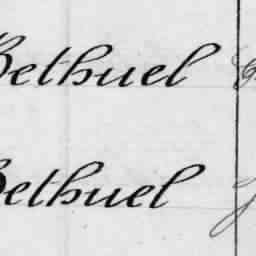 Bethuel
Bethuel